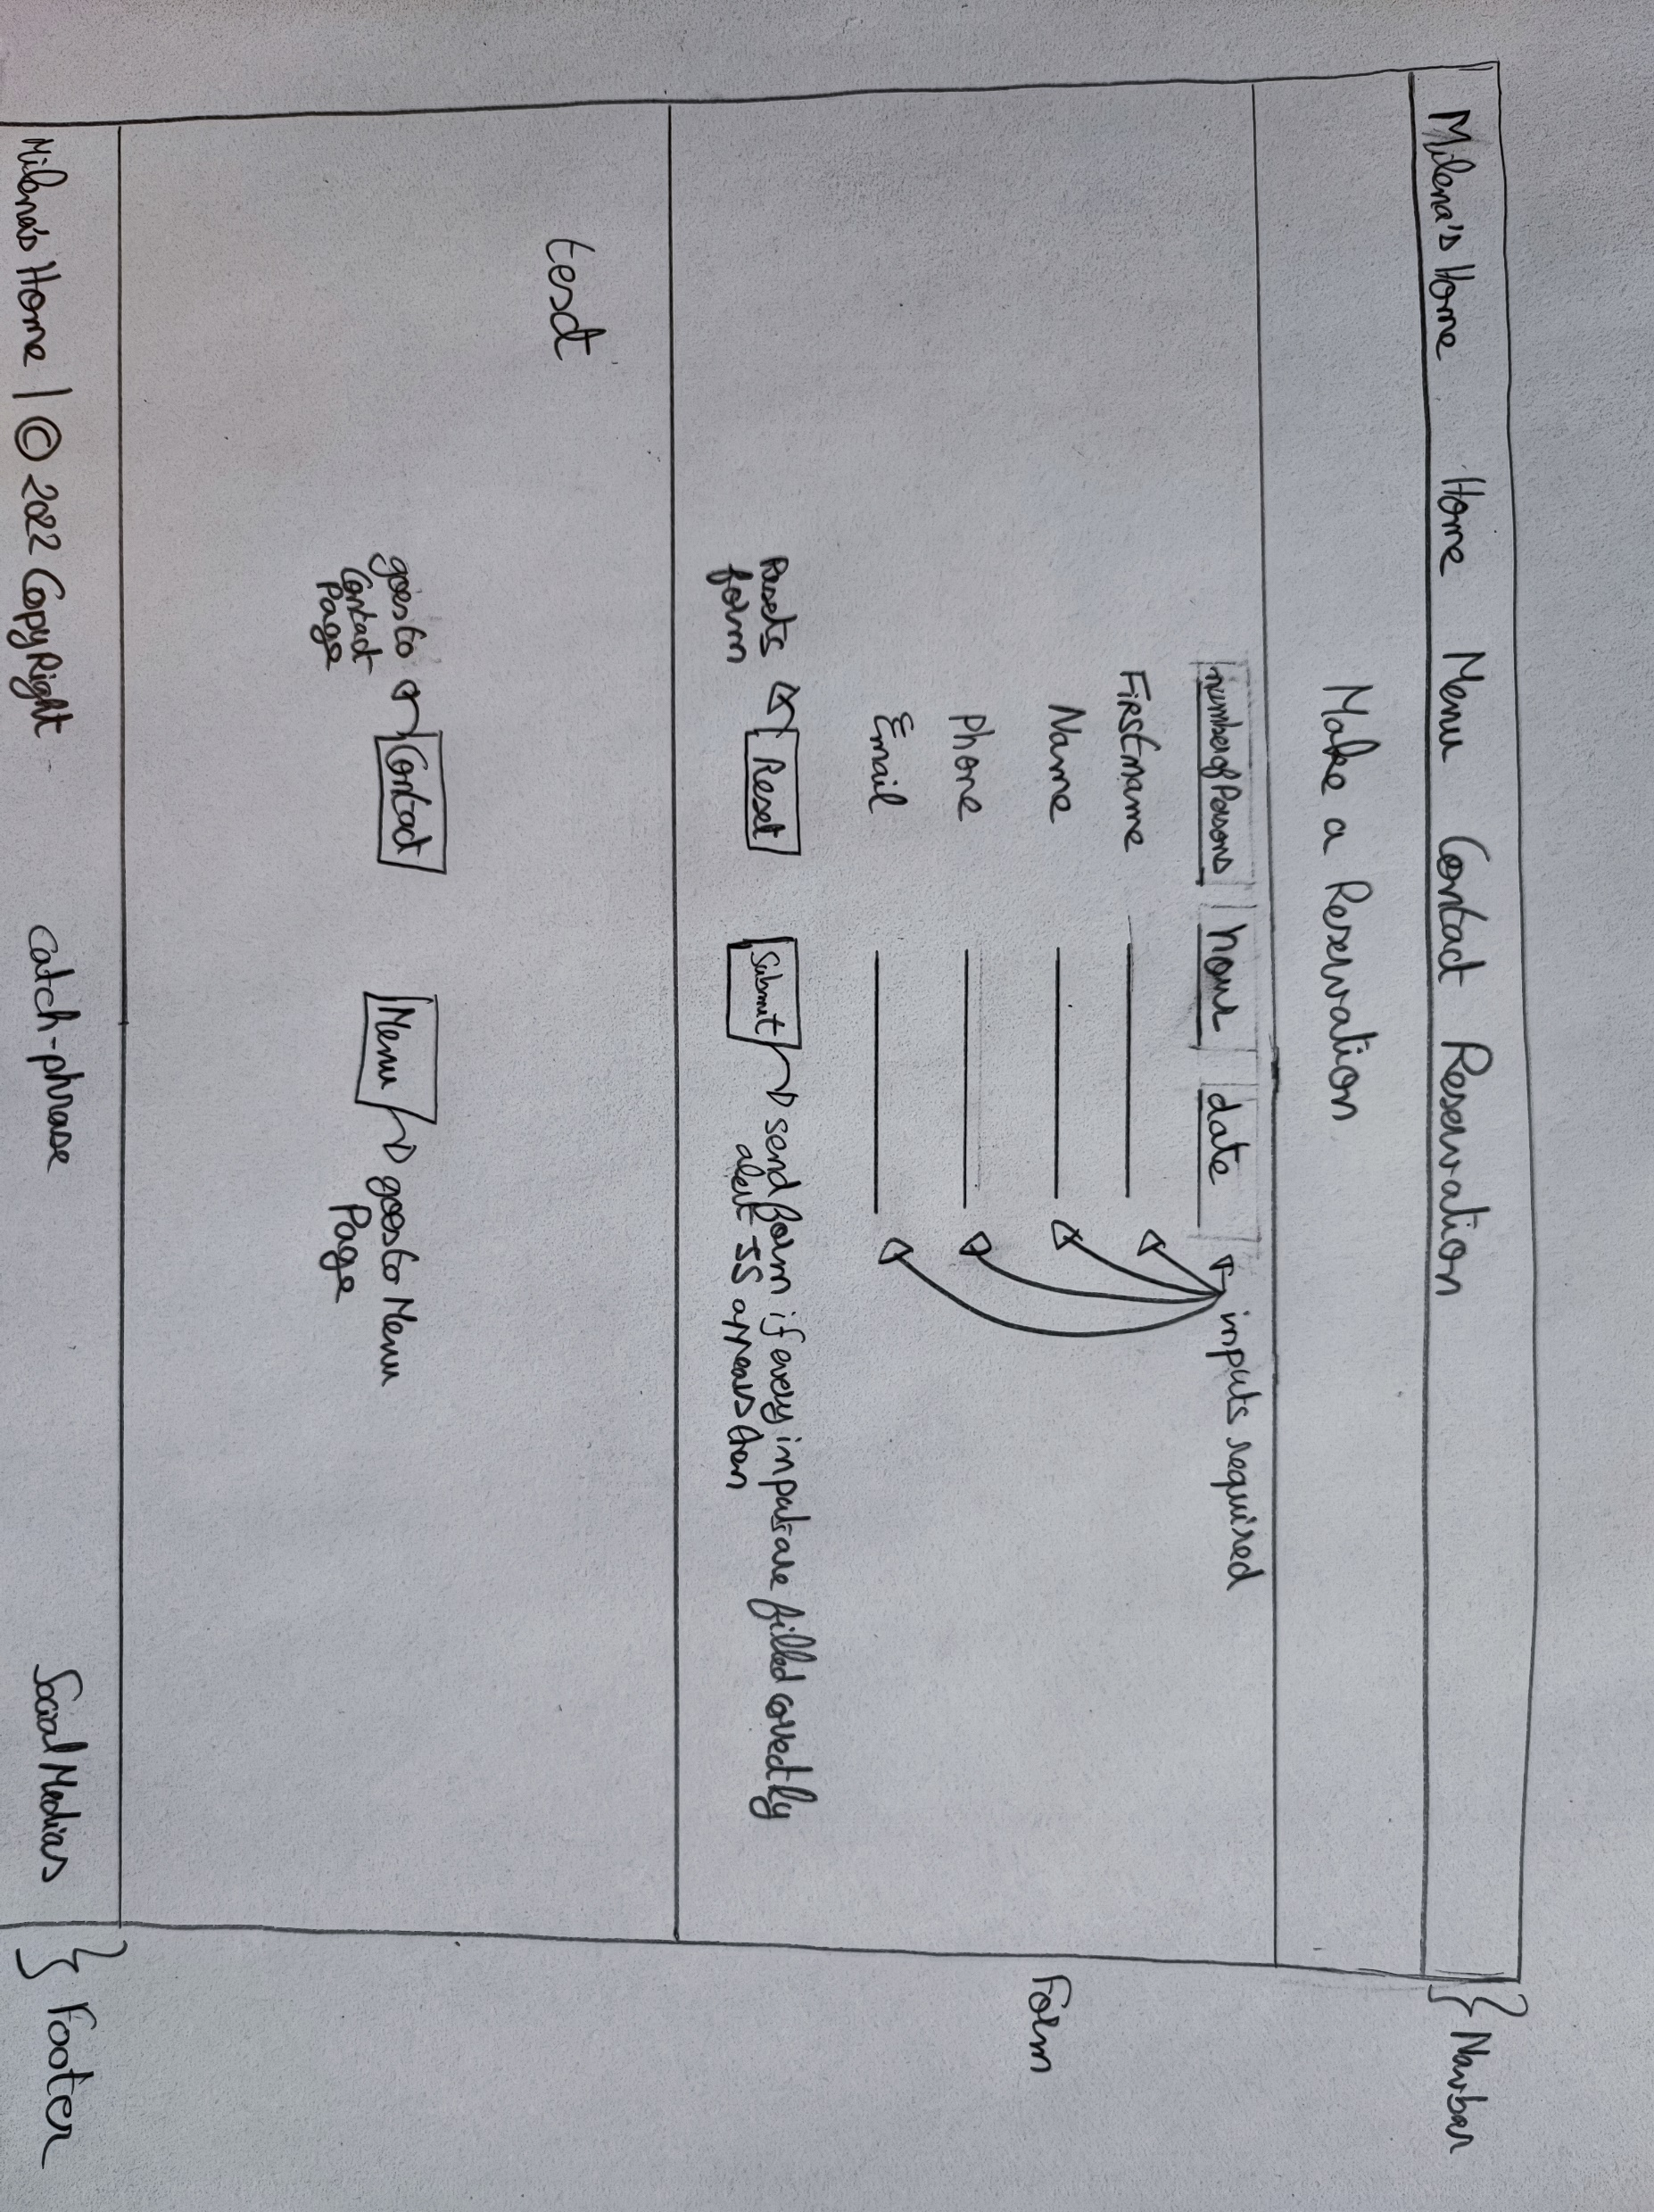 Milena's Home Home Menu Contact Reservation
} Navbar
Make a Reservation
number of Persons hour date
inputs required
Firstname
Name
Phone
Email
Form
Resets
form
Reset
Submit
send form if every input are filled correctly
alert JS appears then
test
goes to
Contact
Page
Contact
Menu
goes to Menu
Page
Milena's Home | © 2022 CopyRight catch-phrase Social Medias
} Footer